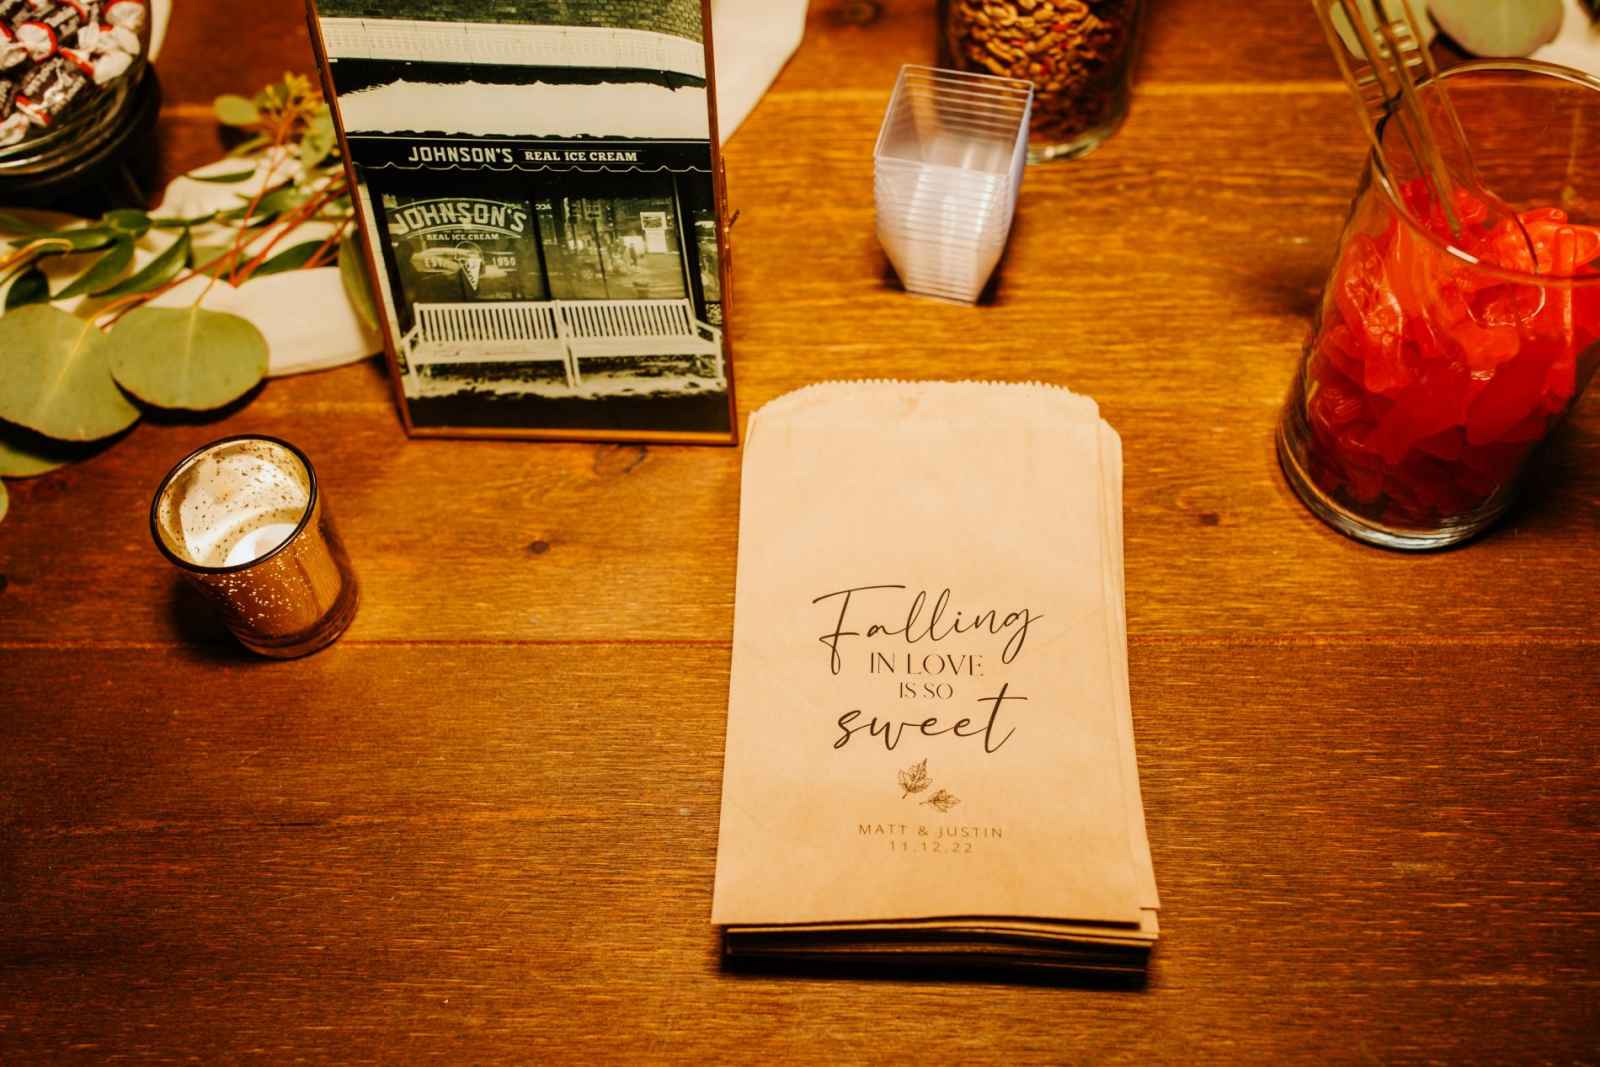 JOHNSON'S REAL ICE CREAM
JOHNSON'S
REAL ICE CREAM
EST. 1950
Falling
IN LOVE
IS SO
sweet
MATT & JUSTIN
11.12.22